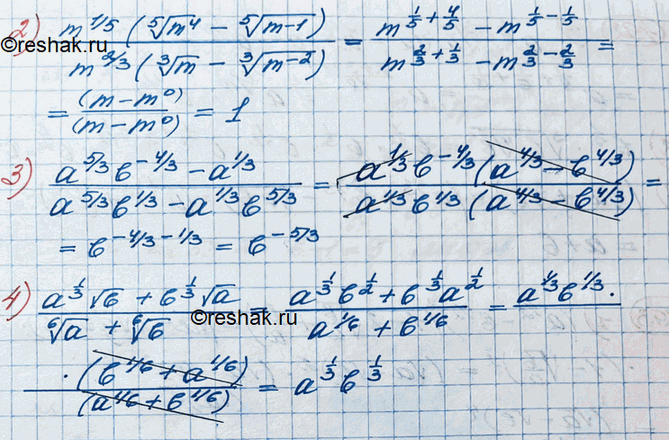 2) m^{1/5} (⁵√m⁴ − ⁵√m−1) / m^{2/3} (³√m − ³√m−2) = m^{1/5+4/5} − m^{1/5−1/5} / m^{2/3+1/3} − m^{2/3−2/3} =
©reshak.ru
= (m − m⁰) / (m − m⁰) = 1
3) a^{5/3} b^{−4/3} − a^{1/3} / a^{5/3} b^{1/3} − a^{1/3} b^{5/3} = a^{1/3} b^{−4/3} (a^{4/3} − b^{4/3}) / a^{1/3} b^{1/3} (a^{4/3} − b^{4/3}) =
= b^{−4/3−1/3} = b^{−5/3}
4) a^{1/3} √b + b^{1/3} √a / ⁶√a + ⁶√b = a^{1/3} b^{1/2} + b^{1/3} a^{1/2} / a^{1/6} + b^{1/6} = a^{1/3} b^{1/3} ·
©reshak.ru
· (b^{1/6} + a^{1/6}) / (a^{1/6} + b^{1/6}) = a^{1/3} b^{1/3}